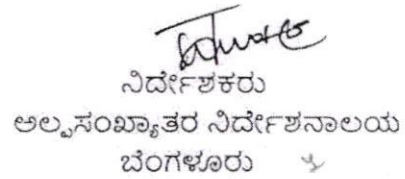 ನಿರ್ದೇಶಕರು
ಅಲ್ಪಸಂಖ್ಯಾತರ ನಿರ್ದೇಶನಾಲಯ
ಬೆಂಗಳೂರು